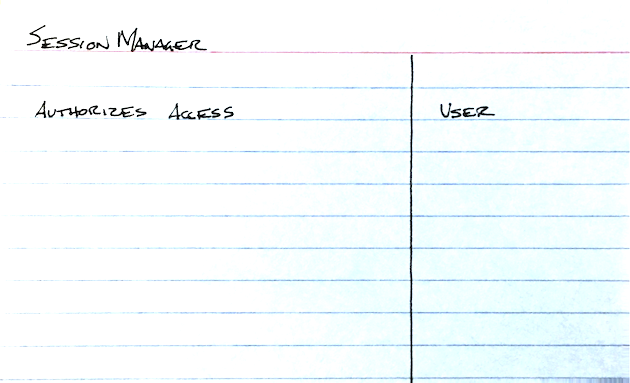 SESSION MANAGER
AUTHORIZES ACCESS
USER